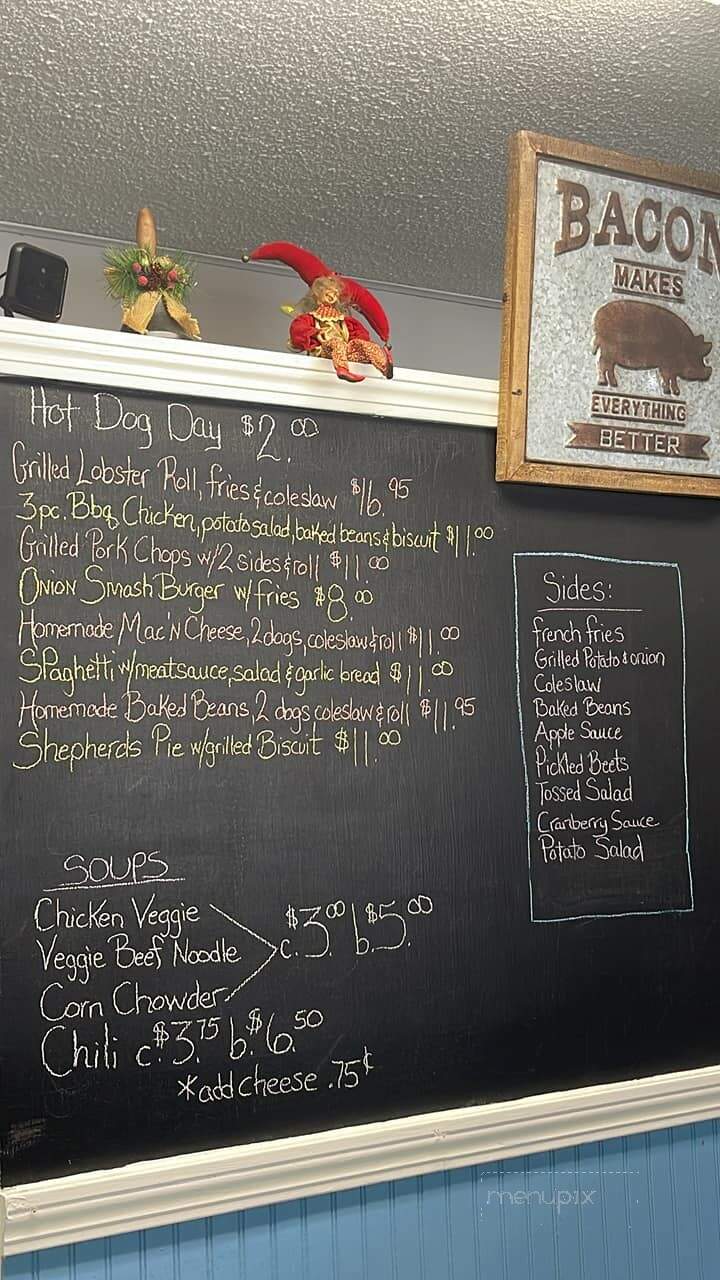 BACON
MAKES
EVERYTHING
BETTER
Hot Dog Day $2.00
Grilled Lobster Roll, fries & coleslaw $16.95
3pc. Bbq Chicken, potato salad, baked beans & biscuit $11.00
Grilled Pork Chops w/2 sides & roll $11.00
Onion Smash Burger w/fries $8.00
Homemade Mac'N Cheese, 2 dogs, coleslaw & roll $11.00
Spaghetti w/meatsauce, salad & garlic bread $11.00
Homemade Baked Beans, 2 dogs coleslaw & roll $11.95
Shepherds Pie w/grilled Biscuit $11.00
Sides:
french fries
Grilled Potato & onion
Coleslaw
Baked Beans
Apple Sauce
Pickled Beets
Tossed Salad
Cranberry Sauce
Potato Salad
SOUPS
Chicken Veggie
Veggie Beef Noodle
Corn Chowder
c. $3.00 b. $5.00
Chili c. $3.75 b. $6.50
*add cheese .75¢
menupix